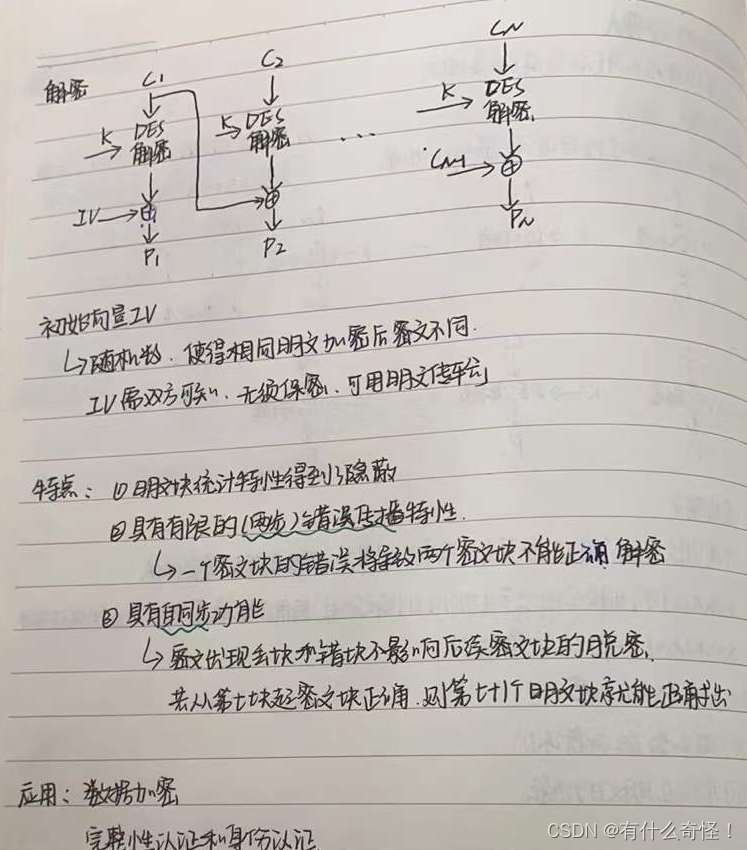 解密
C1 C2 CN
K DES 解密 K DES 解密 ... K DES 解密
IV ⊕ ⊕ CN-1 ⊕
P1 P2 PN
初始向量IV
↳随机数、使得相同明文加密后密文不同.
IV需双方可知、无须保密、可用明文传
特点：①明文块统计特性得到了隐蔽
②具有有限的(两步)错误传播特性.
↳一个密文块的错误将导致两个密文块不能正确解密
③具有自同步功能
↳密文出现丢块和错块不影响后续密文块的脱密.
若从第t块起密文块正确.则第t+1个明文块就能正确求出
应用：数据加密
完整性认证和身份认证
CSDN @有什么奇怪！